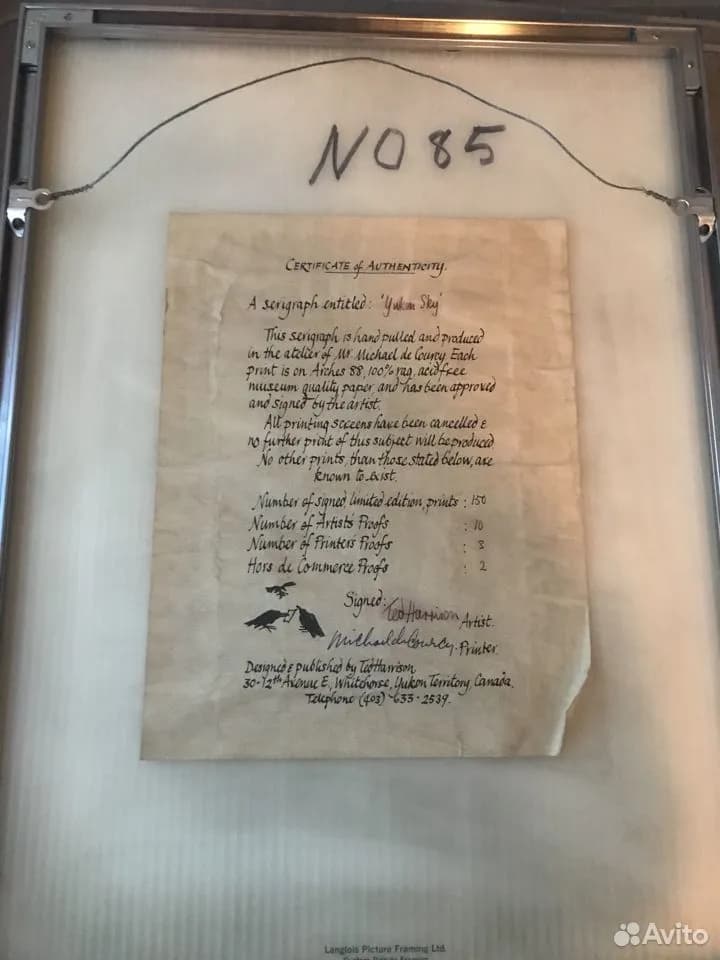 NO 85
CERTIFICATE of AUTHENTICITY.
A serigraph entitled: 'Yukon Sky'
This serigraph is hand pulled and produced
in the atelier of Mr. Michael de Courcy. Each
print is on Arches 88, 100% rag, acid free
museum quality paper and has been approved
and signed by the artist.
All printing screens have been cancelled &
no further print of this subject will be produced
No other prints, than those stated below, are
known to exist.
Number of signed, limited edition, prints : 150
Number of Artist's Proofs : 10
Number of Printer's Proofs : 3
Hors de Commerce Proofs : 2
Signed: Ted Harrison Artist.
Michael de Courcy. Printer.
Designed & published by Ted Harrison
30-12th Avenue E., Whitehorse, Yukon Territory, Canada.
Telephone (403) - 633 - 2539.
Langlois Picture Framing Ltd.
Avito